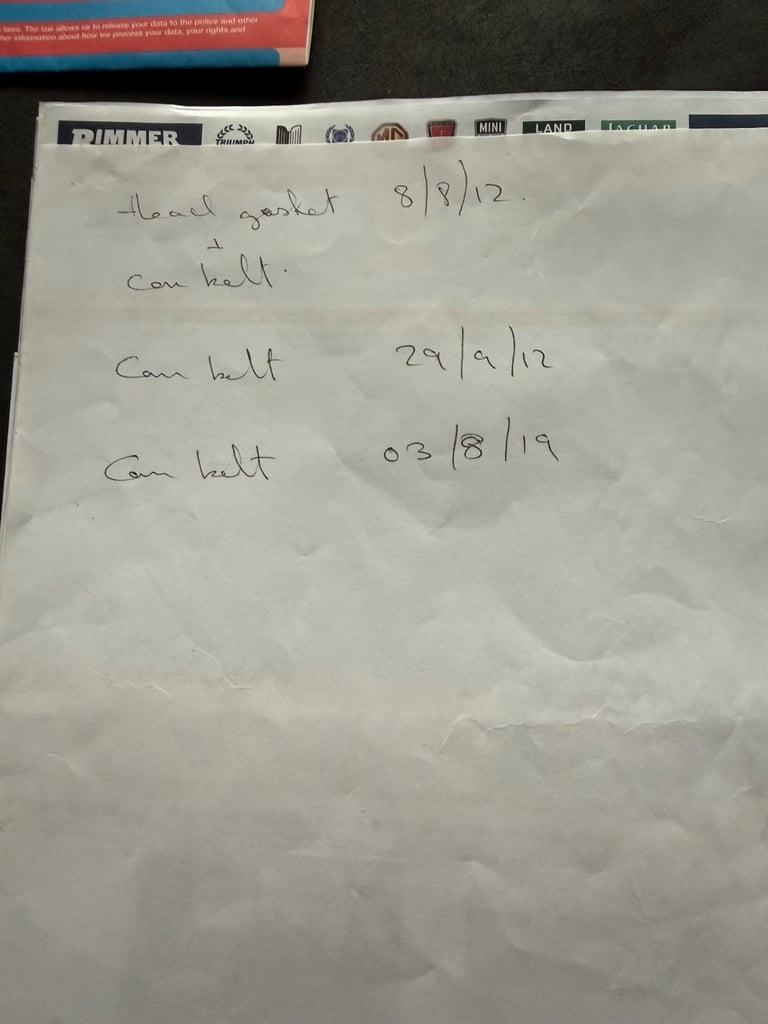 laws. The law allows us to release your data to the police and other
her information about how we process your data, your rights and
RIMMER TRIUMPH MG MINI LAND JAGUAR
Head gasket 8/8/12.
+
Cam belt.
Cam belt 29/9/12
Cam belt 03/8/19